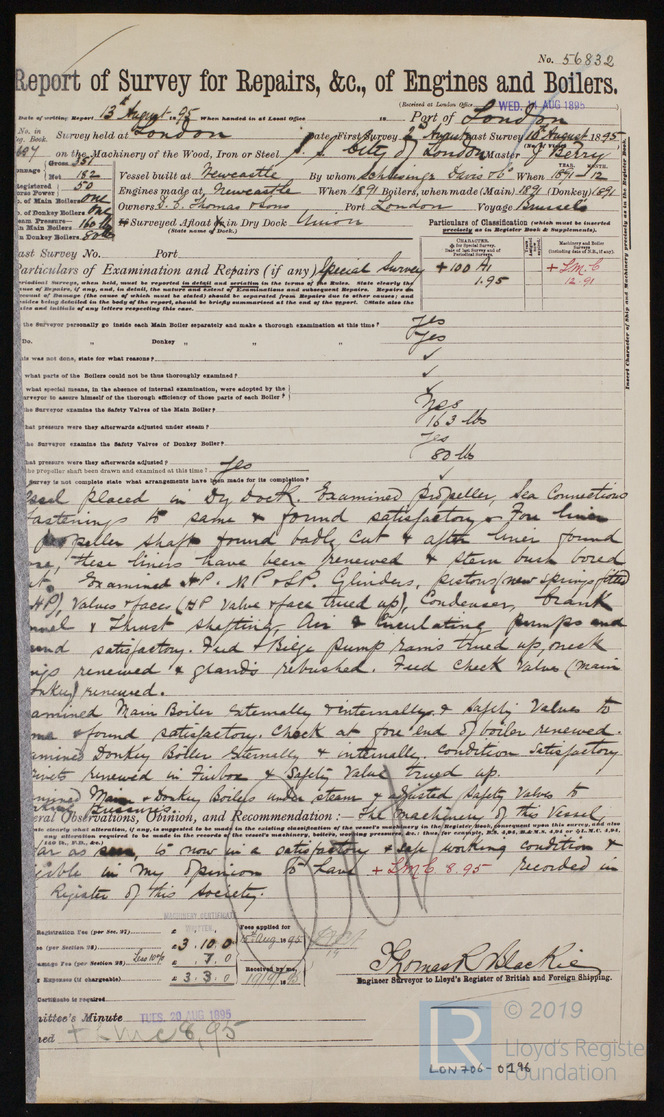 No. 56832
Report of Survey for Repairs, &c., of Engines and Boilers.
(Received at London Office WED. 14 AUG 1895
Date of writing Report 13th August 1895 When handed in at Local Office 18 Port of London
No. in Reg. Book. Survey held at London Date, First Survey August Last Survey August 1895
on the Machinery of the Wood, Iron or Steel S. S. City of London Master J Berry
Gross 
Net 182 Vessel built at Newcastle By whom Schlesinger Davis & Co When 1891-12
Registered Horse Power 50 Engines made at Newcastle When 1891 Boilers, when made (Main) 1891 (Donkey) 1891
No. of Main Boilers one Owners D. Thomas & Sons Port London Voyage Brussels
No. of Donkey Boilers one
Steam Pressure in Main Boilers 160 lb Surveyed Afloat or in Dry Dock Union
(State name of Dock.)
in Donkey Boilers 80 lb
Particulars of Classification (which must be inserted precisely as in Register Book & Supplements).
Last Survey No. Port
Particulars of Examination and Repairs (if any) Special Survey
+ 100 A1
1.95
+ L.M.C
12-91
Insert Character of Ship and Machinery precisely as in the Register Book.
Periodical Surveys, when held, must be reported in detail and seriatim in the terms of the Rules. State clearly the
cause of Repairs, if any, and, in detail, the nature and extent of Examinations and subsequent Repairs. Repairs on
account of Damage (the cause of which must be stated) should be separated from Repairs due to other causes; and
besides being detailed in the body of the report, should be briefly summarised at the end of the report. State also the
dates and initials of any letters respecting this case.
the Surveyor personally go inside each Main Boiler separately and make a thorough examination at this time? Yes
Do. Donkey " " " Yes
this was not done, state for what reasons? ✓
what parts of the Boilers could not be thus thoroughly examined? ✓
what special means, in the absence of internal examination, were adopted by the
surveyor to assure himself of the thorough efficiency of those parts of each Boiler? ✓
the Surveyor examine the Safety Valves of the Main Boiler? Yes
what pressure were they afterwards adjusted under steam? 163 lbs
the Surveyor examine the Safety Valves of Donkey Boiler? Yes
what pressure were they afterwards adjusted? 80 lb
the propeller shaft been drawn and examined at this time? Yes
Survey is not complete state what arrangements have been made for its completion? ✓
Vessel placed in Dry Dock. Examined propeller, Sea Connections
fastenings to same & found satisfactory. Fore liner
propeller shaft found badly cut & after liner found
these liners have been renewed & stern bush bored
out. Examined HP. MP & LP. Cylinders, pistons (new springs fitted
HP), Valves & faces (HP valve & face trued up), Condenser, crank
tunnel & thrust shafting, Air & Circulating pumps and
found satisfactory. Feed & Bilge pump rams trued up, neck
rings renewed & glands rebushed. Feed check valves (main
donkey) renewed.
Examined Main Boiler externally & internally & Safety Valves to
same & found satisfactory. Chock at fore end of boiler renewed.
Examined Donkey Boiler externally & internally. Condition satisfactory
rivets renewed in Firebox & Safety Valve trued up.
Examined Main & Donkey Boilers under steam & adjusted Safety Valves to
working pressures.
General Observations, Opinion, and Recommendation:— The machinery of this Vessel
so far as seen, is now in a satisfactory & safe working condition &
eligible in my opinion to have + L.M.C. 8.95 recorded in
Register of this Society.
MACHINERY CERTIFICATE
Registration Fee (per Sec. 27)
(per Section 28) £ 3.10.0
Damage Fee (per Section 28) Less 10% £ .7.0
Expenses (if chargeable) £ 3.3.0
Fees applied for
Aug. 1895
Received by me,
Certificate is required
Thomas R Blackie
Engineer Surveyor to Lloyd's Register of British and Foreign Shipping.
Committee's Minute TUES. 20 AUG 1895
+ LMC 8,95
© 2019
Lloyd's Register
Foundation
LON706-0196